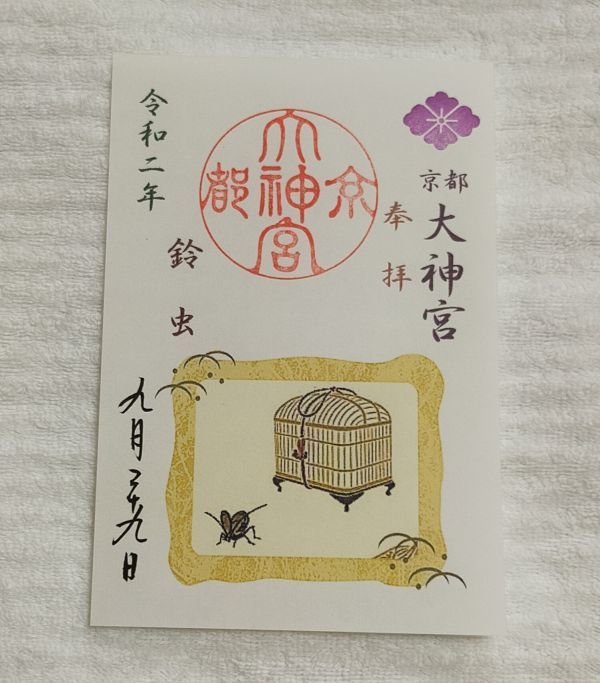 京都
大神宮
奉拝
京都
大神宮
鈴虫
令和二年
九月二十九日